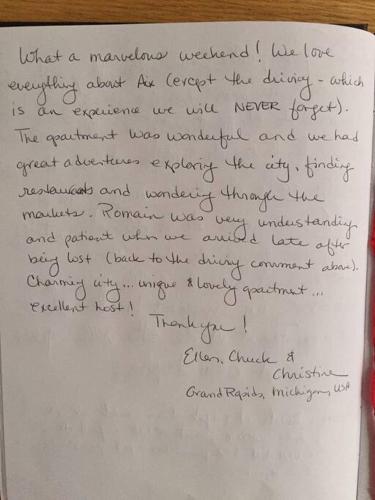 What a marvelous weekend! We love
everything about Aix (except the driving - which
is an experience we will NEVER forget).
The apartment was wonderful and we had
great adventures exploring the city, finding
restaurants and wondering through the
markets. Romain was very understanding
and patient when we arrived late after
being lost (back to the driving comment above).
Charming city... unique & lovely apartment...
excellent host!
Thank you!
Ellen, Chuck &
Christine
Grand Rapids, Michigan, USA